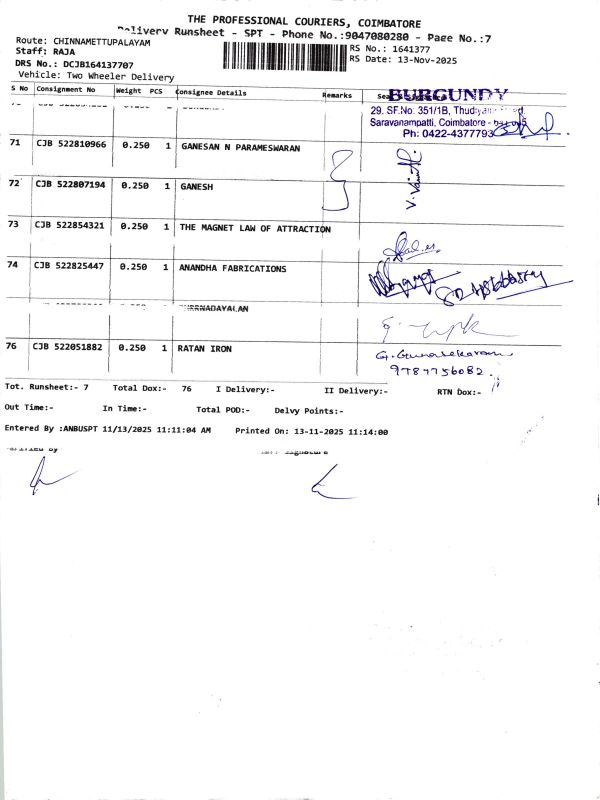 THE PROFESSIONAL COURIERS, COIMBATORE
Delivery Runsheet - SPT - Phone No.:9047080280 - Page No.:7
Route: CHINNAMETTUPALAYAM
Staff: RAJA
RS No.: 1641377
DRS No.: DCJB164137707
RS Date: 13-Nov-2025
Vehicle: Two Wheeler Delivery
S No Consignment No Weight PCS Consignee Details Remarks
BURGUNDY
29, SF.No: 351/1B,
Saravanampatti, Coimbatore -
Ph: 0422-4377793
71 CJB 522810966 0.250 1 GANESAN N PARAMESWARAN
72 CJB 522807194 0.250 1 GANESH
73 CJB 522854321 0.250 1 THE MAGNET LAW OF ATTRACTION
74 CJB 522825447 0.250 1 ANANDHA FABRICATIONS
76 CJB 522051882 0.250 1 RATAN IRON
G. Gunasekaran
9787756082.
Tot. Runsheet:- 7 Total Dox:- 76 I Delivery:- II Delivery:- RTN Dox:-
Out Time:- In Time:- Total POD:- Delvy Points:-
Entered By :ANBUSPT 11/13/2025 11:11:04 AM Printed On: 13-11-2025 11:14:00